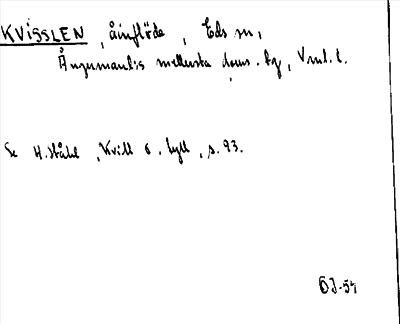 KVISSLEN, åinflöde, Eds sn,
Ångermanl:s mellersta doms. bg, Vnl. l.
Se H. Ståhl, Kvill o. hyll, s. 93.
ÖJ-54